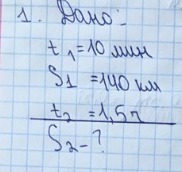 1. Дано:
t₁=10 мин
S₁=140 км
t₂=1,5ч
S₂-?